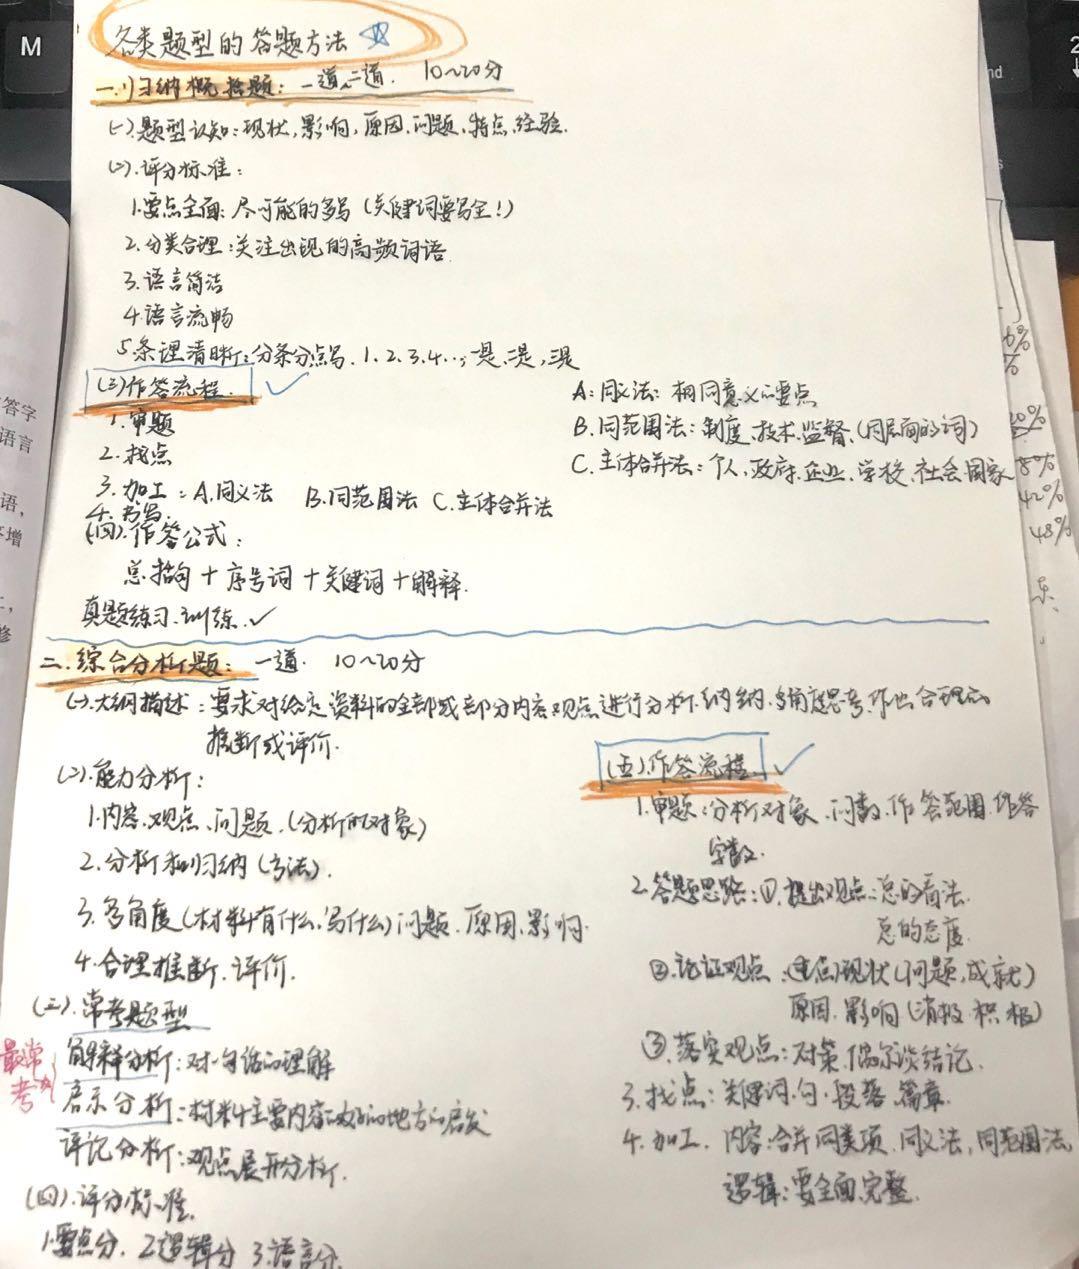 M
2
nd
s
各类题型的答题方法
一.归纳概括题: 一道、二道. 10~20分
(一).题型认知:现状,影响,原因.问题、特点.经验.
(二).评分标准:
1.要点全面:尽可能的多写(关键词要写全!)
2.分类合理:关注出现的高频词语.
3.语言简洁
4.语言流畅
5.条理清晰:分条分点写.1.2.3.4..;一是.二是,三是
(三)作答流程.
1.审题
2.找点
3.加工:A.同义法 B.同范围法 C.主体合并法
4.书写.
A:同义法:相同意义的要点
B.同范围法:制度、技术.监督.(同层面的词)
C.主体合并法:个人、政府.企业、学校、社会.国家
(四).作答公式:
总括句+序号词+关键词+解释.
真题练习.训练.✓
二.综合分析题: 一道. 10~20分
(一).大纲描述:要求对给定资料的全部或部分内容.观点进行分析.归纳.多角度思考.作出合理的
推断或评价.
(二).能力分析:
1.内容.观点、问题.(分析的对象)
2.分析和归纳(方法).
3.多角度(材料有什么.写什么)问题.原因.影响.
4.合理推断.评价.
(三).常考题型
最常考
解释分析:对一句话的理解
启示分析:材料主要内容的好的地方的启发
评论分析:观点展开分析.
(四).评分标准.
1.要点分. 2.逻辑分 3.语言分
(五).作答流程.
1.审题:分析对象.问数.作答范围.作答
字数.
2.答题思路:①.提出观点:总的看法.
总的态度.
②.论证观点:(重点)现状(问题,成就)
原因.影响(消极.积极)
③.落实观点:对策.偶尔谈结论.
3.找点:关键词.句.段落.篇章.
4.加工.内容:合并同类项.同义法,同范围法
逻辑:要全面.完整.
答字
语言
语,
增
修
8%
42%
48%